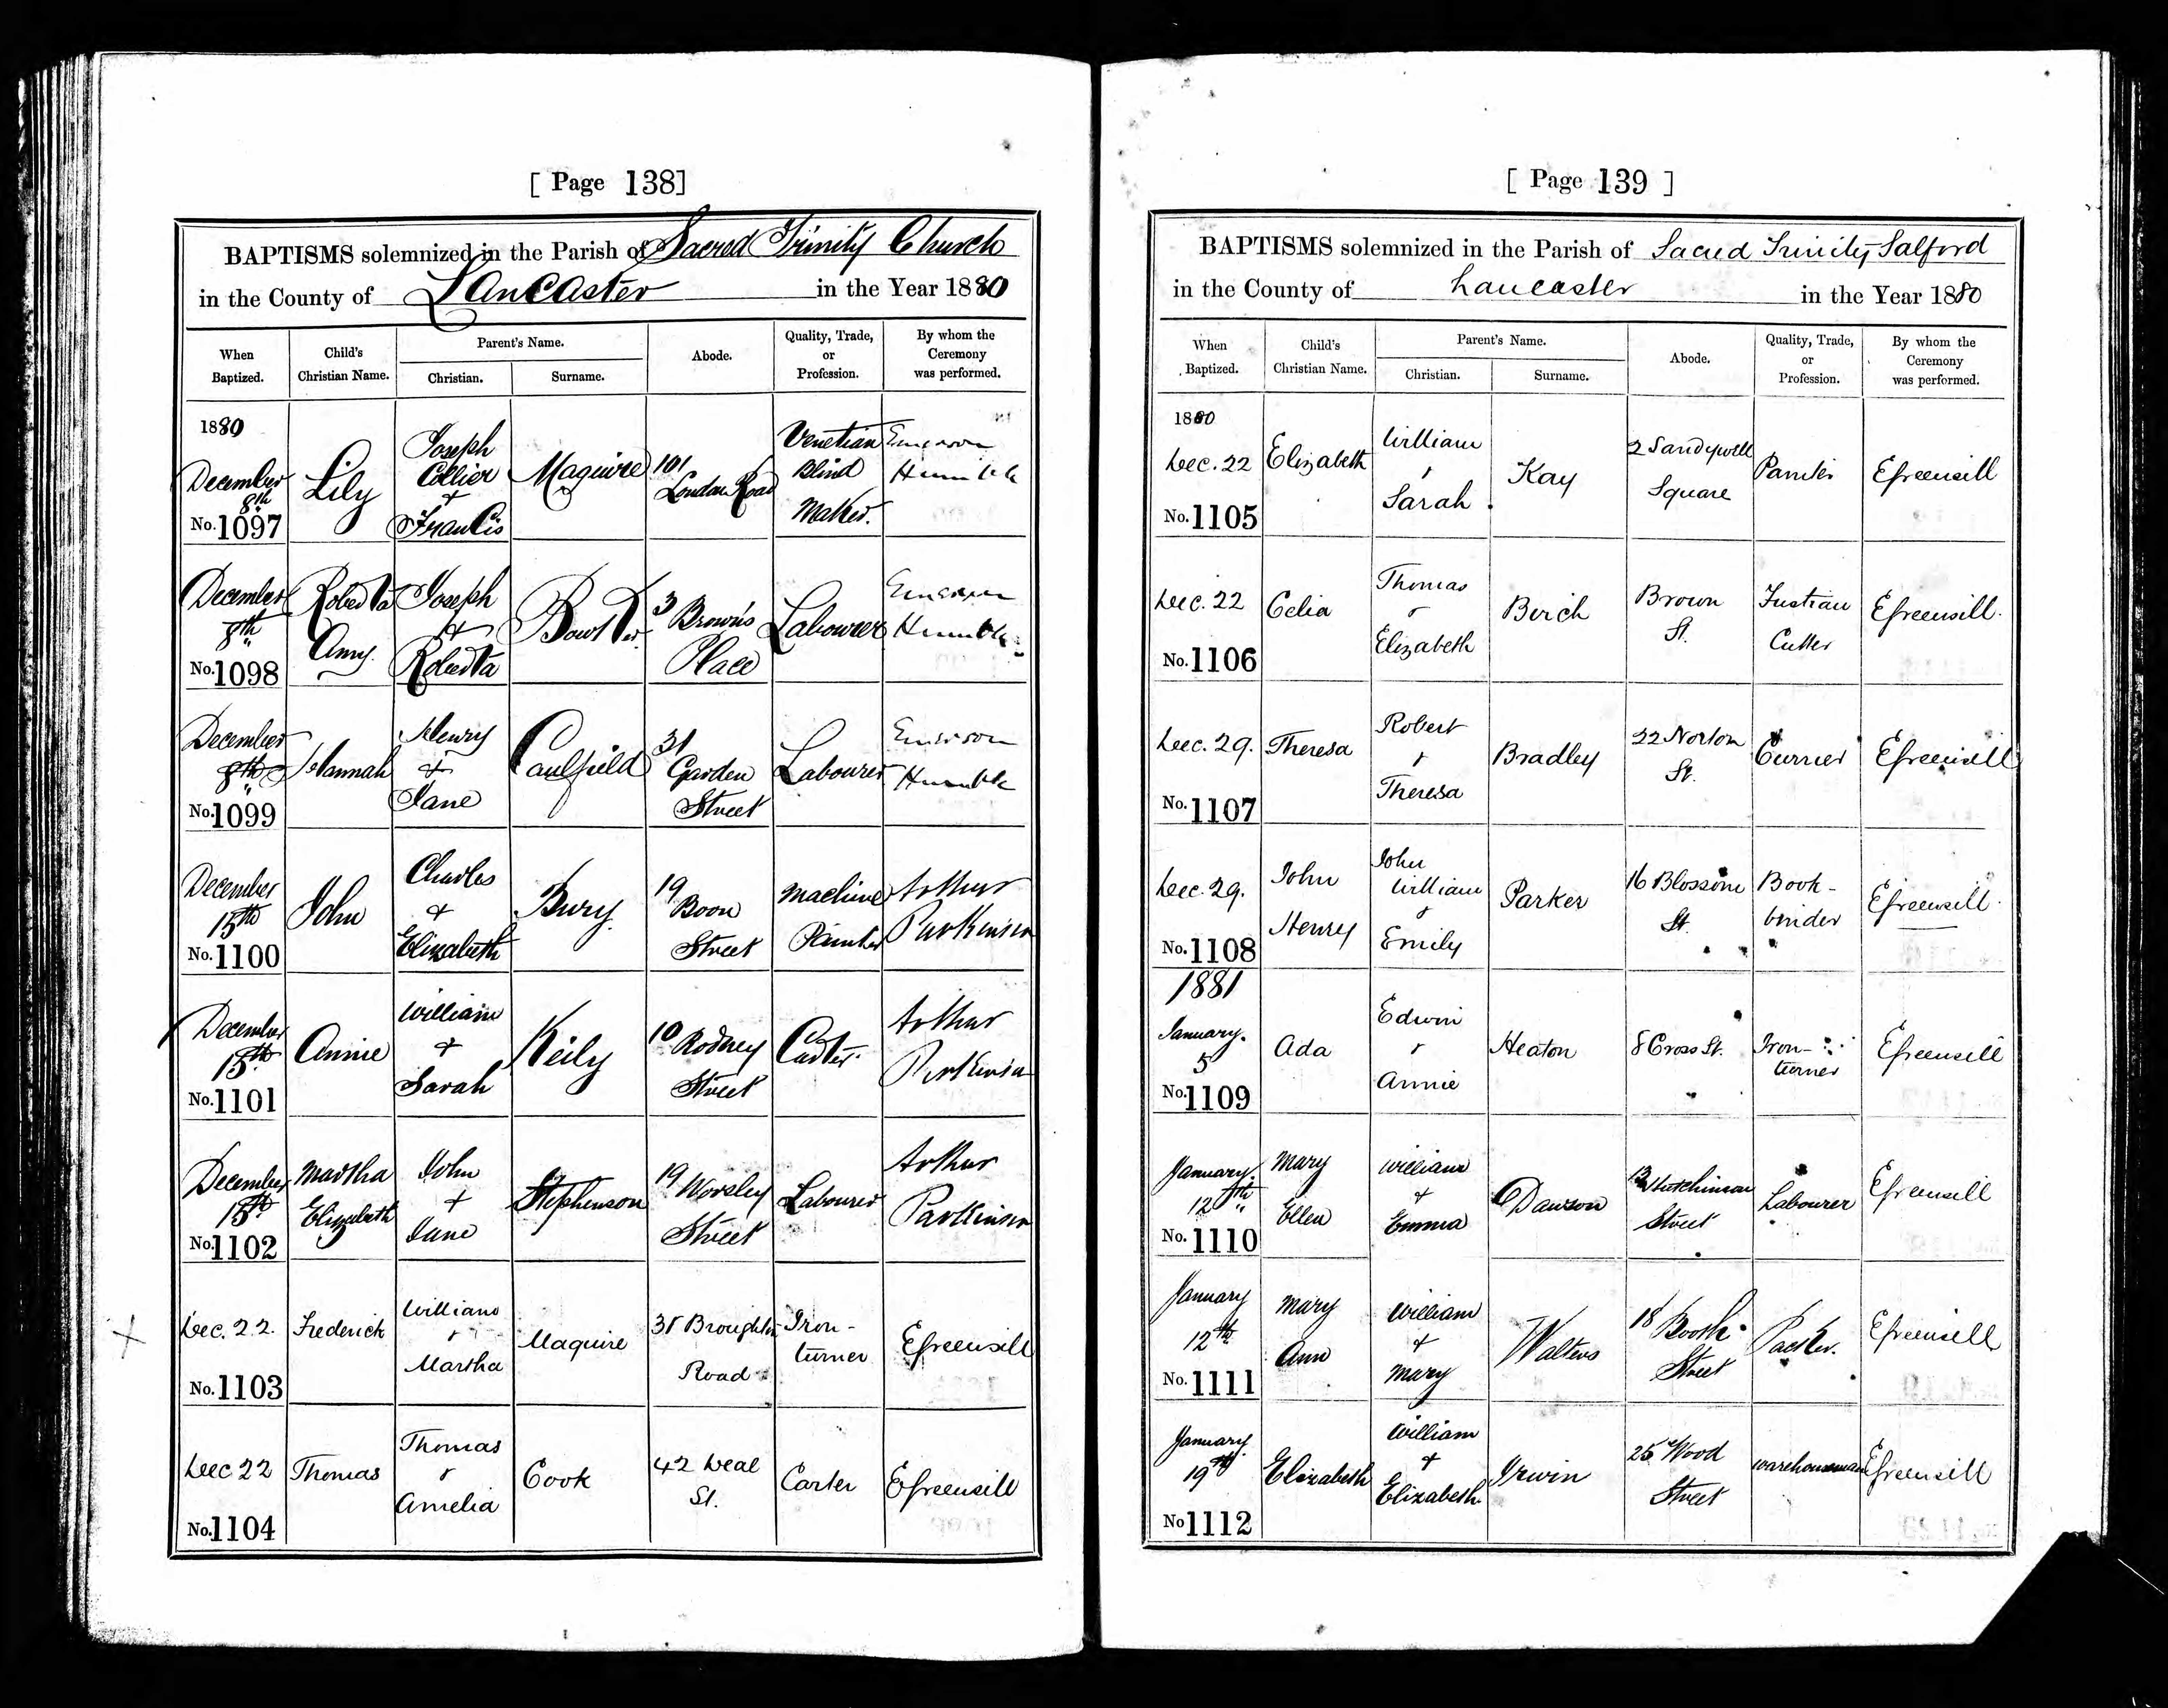 [ Page 138]
BAPTISMS solemnized in the Parish of Sacred Trinity Church
in the County of Lancaster in the Year 1880
When Baptized.
Child's Christian Name.
Parent's Name.
Christian.
Surname.
Abode.
Quality, Trade, or Profession.
By whom the Ceremony was performed.
1880
December 8th
No. 1097
Lily
Joseph Collier + Francis
Maguire
101 London Road
Venetian Blind Maker.
Emerson Humble
December 8th
No. 1098
Roberta Amy.
Joseph + Roberta
3 Brown's Place
Labourer
Emerson Humble
December 8th
No. 1099
Hannah
Henry + Jane
Caulfield
31 Garden Street
Labourer
Emerson Humble
December 15th
No. 1100
John
Charles + Elizabeth
Bury.
19 Boon Street
Machine Painter
Arthur Parkinson
December 15th
No. 1101
Annie
William + Sarah
Keily
10 Rodney Street
Carter.
Arthur Parkinson
December 15th
No. 1102
Martha Elizabeth
John + Jane
Stephenson
19 Worsley Street
Labourer
Arthur Parkinson
Dec. 22.
No. 1103
Frederick
William + Martha
Maguire
Broughton Road
Iron-turner
EGreensill
Dec 22
No. 1104
Thomas
Thomas + Amelia
Cook
42 Deal St.
Carter
EGreensill
[ Page 139 ]
BAPTISMS solemnized in the Parish of Sacred Trinity Salford
in the County of Lancaster in the Year 1880
When Baptized.
Child's Christian Name.
Parent's Name.
Christian.
Surname.
Abode.
Quality, Trade, or Profession.
By whom the Ceremony was performed.
1880
Dec. 22
No. 1105
Elizabeth
William + Sarah.
Kay
2 Sandywell Square
Painter
EGreensill
Dec. 22
No. 1106
Celia
Thomas + Elizabeth
Birch
Brown St.
Fustian Cutter
EGreensill.
Dec. 29.
No. 1107
Theresa
Robert + Theresa
Bradley
22 Norton St.
Currier
EGreensill
Dec. 29.
No. 1108
John Henry
John William + Emily
Parker
16 Blossom St.
Book-binder
EGreensill.
1881
January. 5
No. 1109
Ada
Edwin + Annie
Heaton
8 Cross St.
Iron-turner
EGreensill
January. 12th
No. 1110
Mary Ellen
William + Emma
Dawson
Hutchinson Street
Labourer
EGreensill
January 12th
No. 1111
Mary Ann
William + Mary
Walters
18 Booth Street
Packer.
EGreensill
January. 19th
No 1112
Elizabeth
William + Elizabeth.
Irwin
25 Wood Street
Warehouseman
EGreensill